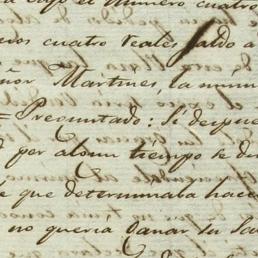 el numero cuatro
cuatro reales saldo a
Martines, la
= Preguntado: Si despues
por algun tiempo se
que determinaba hace
no queria ganar su